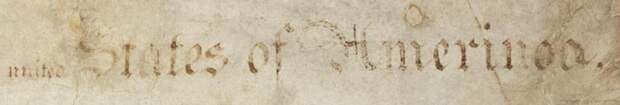 united States of Amerinoa.